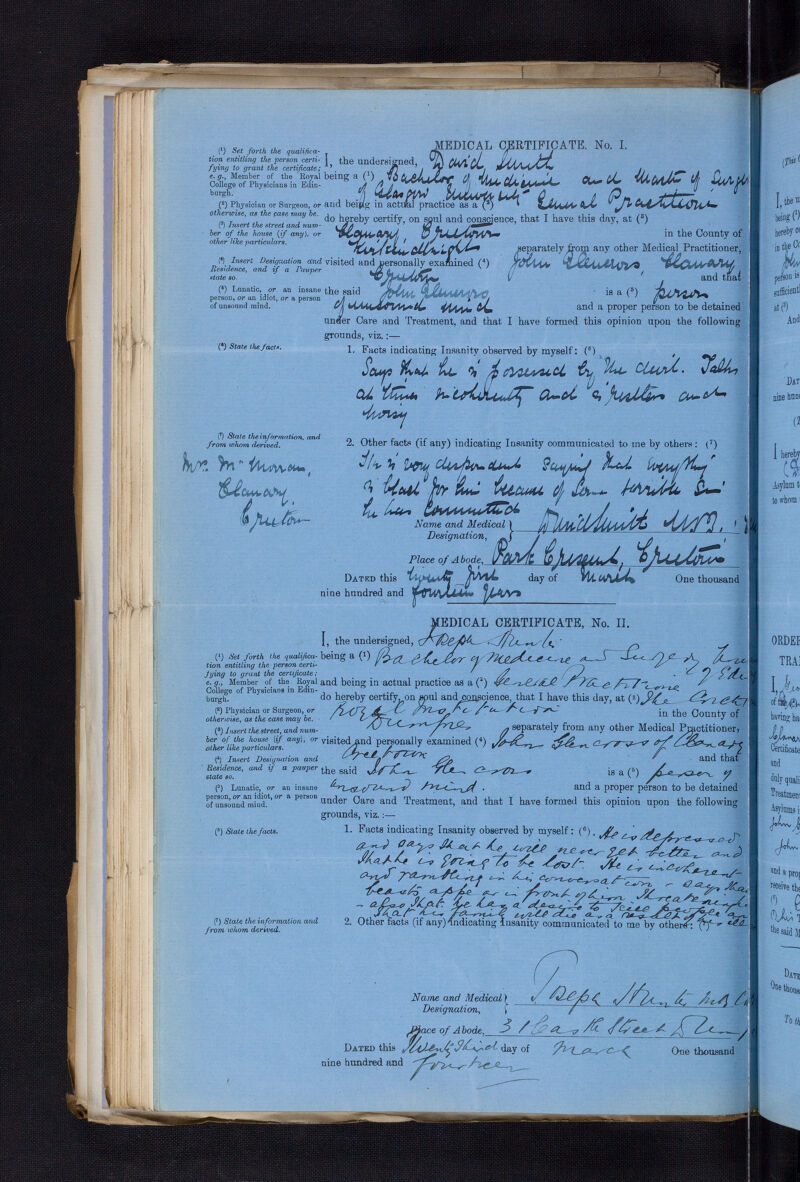 MEDICAL CERTIFICATE. No. I.
(¹) Set forth the qualifica-
tion entitling the person certi-
fying to grant the certificate;
e.g., Member of the Royal
College of Physicians in Edin-
burgh.
(²) Physician or Surgeon, or
otherwise, as the case may be.
(³) Insert the street and num-
ber of the house (if any), or
other like particulars.
(⁴) Insert Designation and
Residence, and if a Pauper
state so.
(⁵) Lunatic, or an insane
person, or an idiot, or a person
of unsound mind.
(⁶) State the facts.
(⁷) State the information, and
from whom derived.
Mrs McMorran,
Clanary,
Creetown
I, the undersigned, David Smith
being a (¹) Bachelor of Medicine and Master of Surgery
of Glasgow University
and being in actual practice as a (²) General Practitioner
do hereby certify, on soul and conscience, that I have this day, at (³)
Clanary, Creetown in the County of
Kirkcudbright separately from any other Medical Practitioner,
visited and personally examined (⁴) John Glencross, Clanary
Creetown and that
the said John Glencross is a (⁵) person
of unsound mind and a proper person to be detained
under Care and Treatment, and that I have formed this opinion upon the following
grounds, viz.:—
1. Facts indicating Insanity observed by myself: (⁶)
Says that he is possessed by the devil. Talks
at times incoherently and is restless and
noisy
2. Other facts (if any) indicating Insanity communicated to me by others: (⁷)
He is very despondent saying that everything
is black for him because of some terrible sin
he has committed
Name and Medical Designation, David Smith M.B.
Place of Abode, Park Crescent, Creetown
DATED this twenty first day of March One thousand
nine hundred and fourteen years
MEDICAL CERTIFICATE, No. II.
(¹) Set forth the qualifica-
tion entitling the person certi-
fying to grant the certificate;
e.g., Member of the Royal
College of Physicians in Edin-
burgh.
(²) Physician or Surgeon, or
otherwise, as the case may be.
(³) Insert the street, and num-
ber of the house (if any), or
other like particulars.
(⁴) Insert Designation and
Residence, and if a pauper
state so.
(⁵) Lunatic, or an insane
person, or an idiot, or a person
of unsound mind.
(⁶) State the facts.
(⁷) State the information and
from whom derived.
I, the undersigned, Joseph Hunter
being a (¹) Bachelor of Medicine and Surgery
of Edin
and being in actual practice as a (²) General Practitioner
do hereby certify, on soul and conscience, that I have this day, at (³) The Crichton
Royal Institution in the County of
Dumfries separately from any other Medical Practitioner,
visited and personally examined (⁴) John Glencross of Clanary
Creetown and that
the said John Glencross is a (⁵) person of
unsound mind. and a proper person to be detained
under Care and Treatment, and that I have formed this opinion upon the following
grounds, viz.:—
1. Facts indicating Insanity observed by myself: (⁶). He is depressed
and says that he will never get better and
that he is going to be lost. He is incoherent
and rambling in his conversation - says that
beasts appear in front of him threatening him
- also that he has a desire to kill people and
that his family will die as a result of
2. Other facts (if any) indicating Insanity communicated to me by others: (⁷)
Name and Medical Designation, Joseph Hunter M.B.
Place of Abode, 31 Castle Street
DATED this Twenty Third day of March One thousand
nine hundred and fourteen